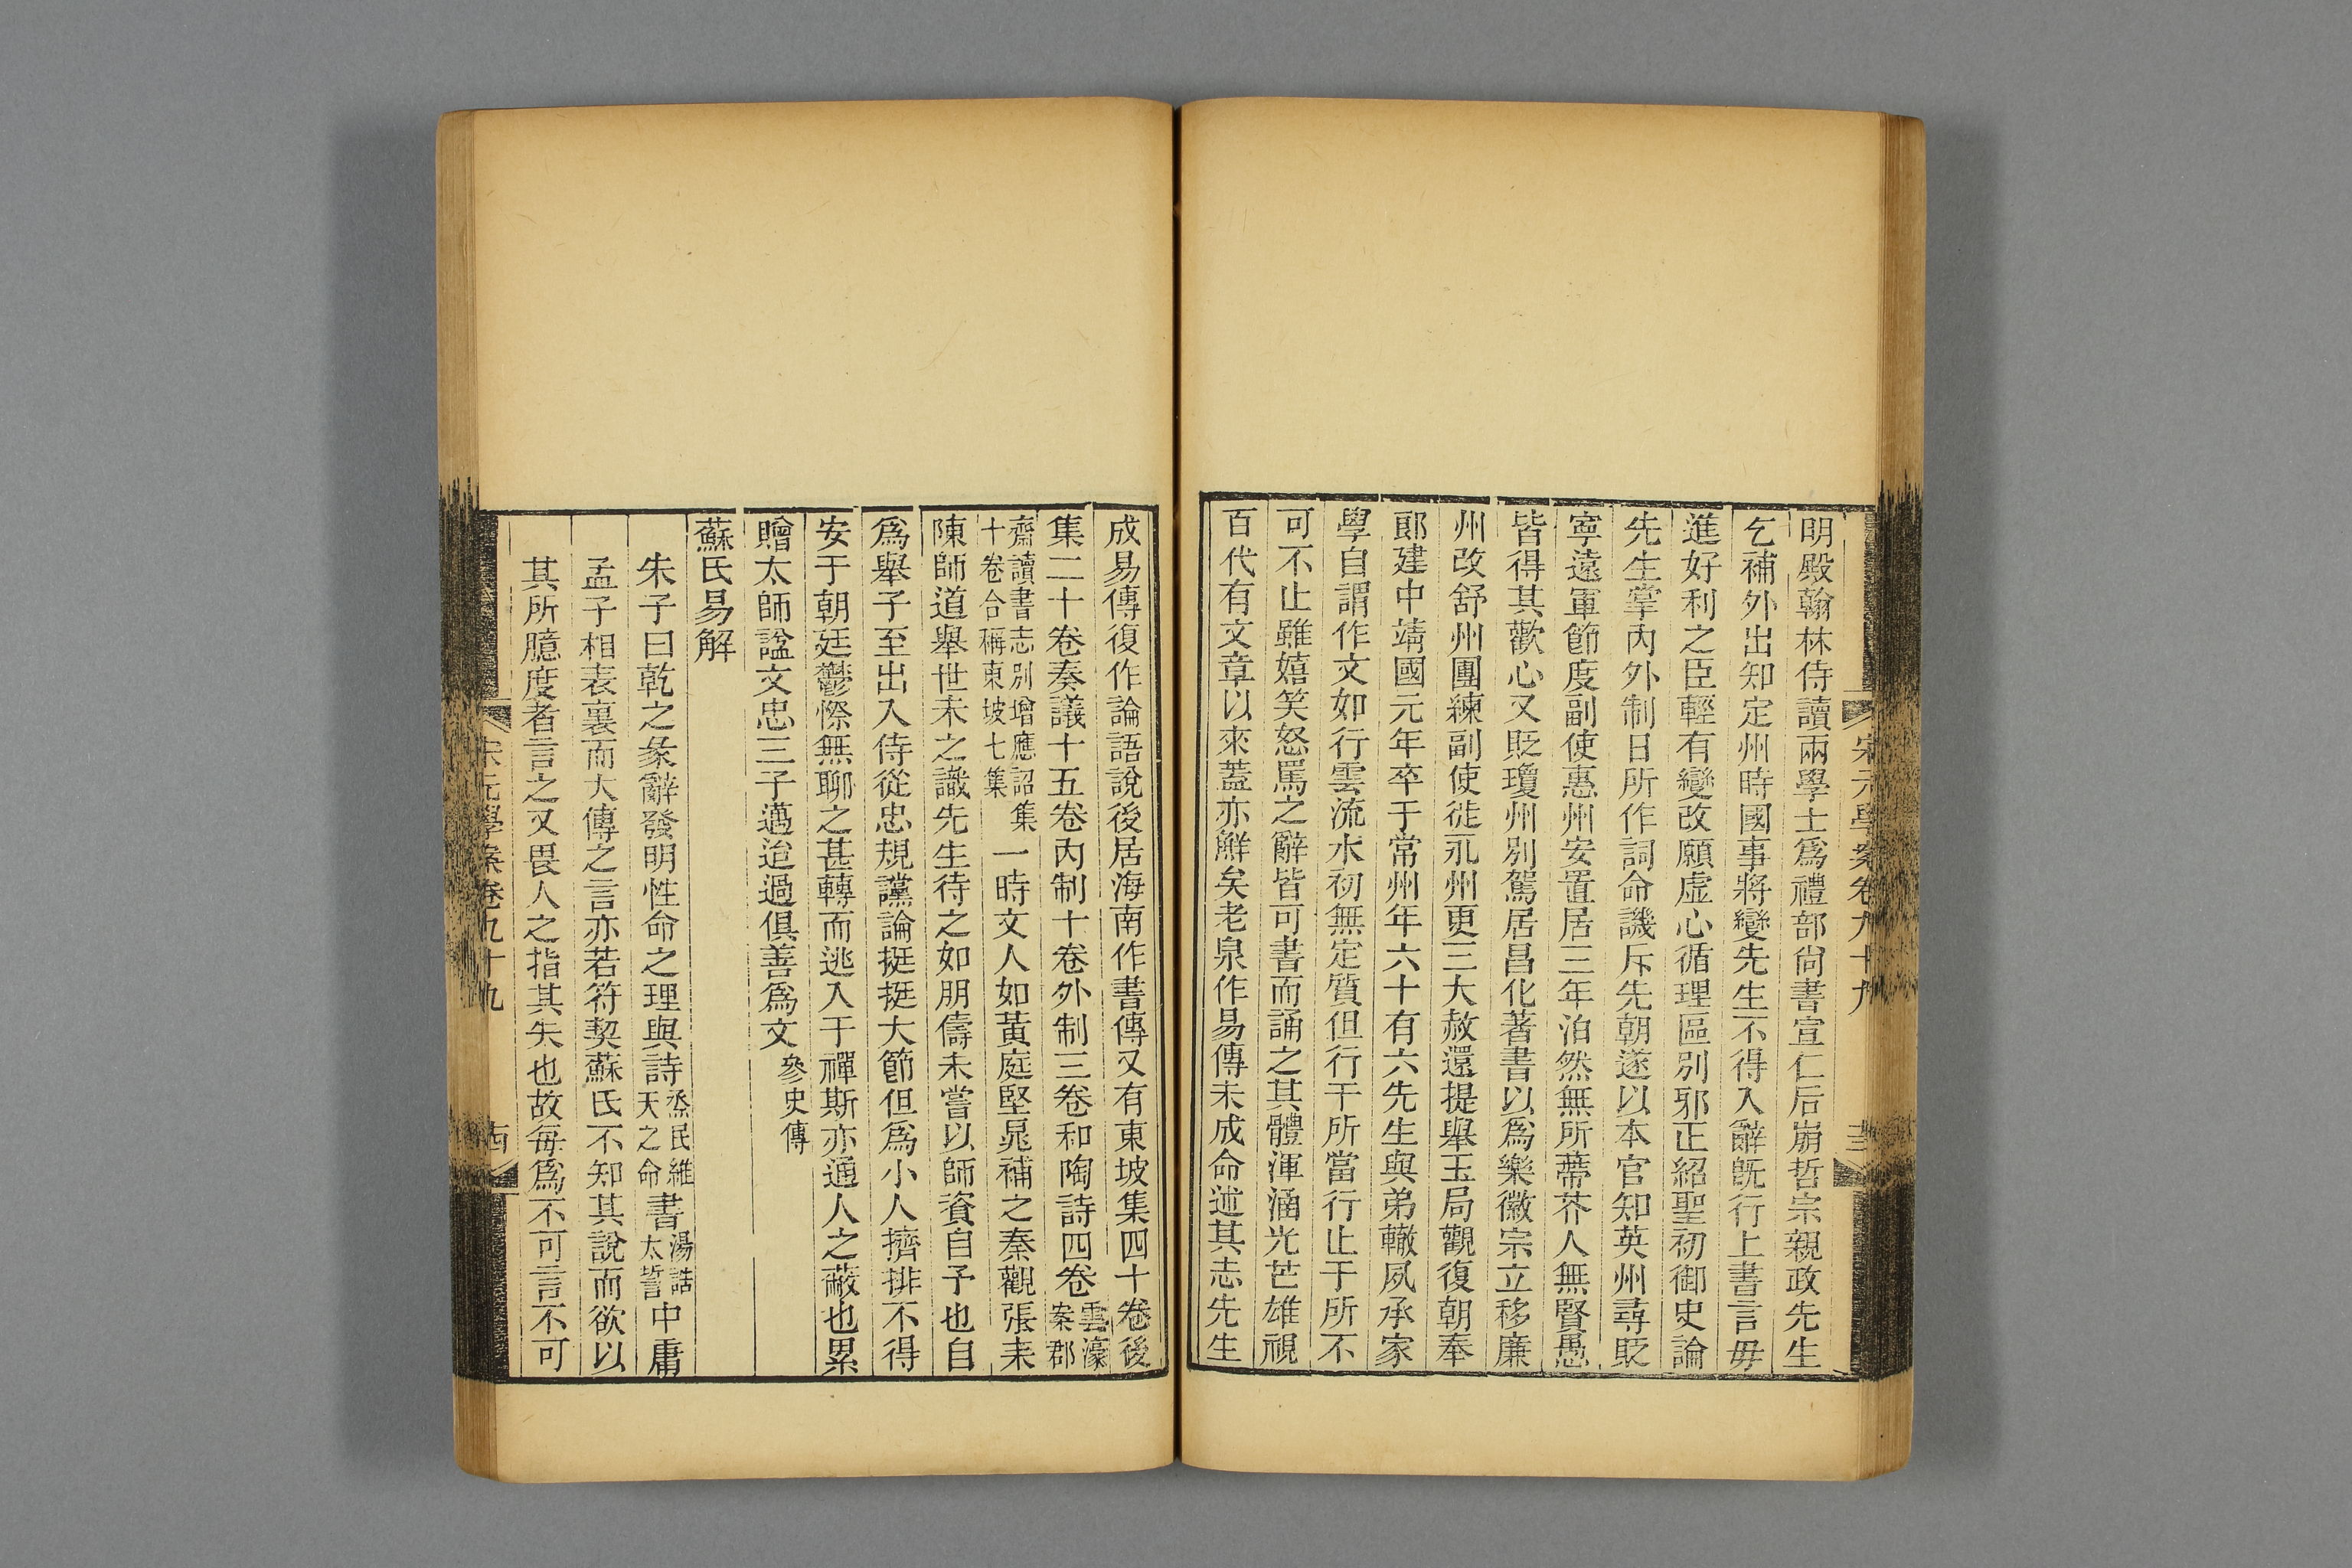 宋元學案卷九十九
明殿翰林侍讀兩學士爲禮部尙書宣仁后崩哲宗親政先生
乞補外出知定州時國事將變先生不得入辭既行上書言毋
進好利之臣輕有變改願虛心循理區別邪正紹聖初御史論
先生掌內外制日所作詞命譏斥先朝遂以本官知英州尋貶
寧遠軍節度副使惠州安置居三年泊然無所蔕芥人無賢愚
皆得其歡心又貶瓊州別駕居昌化著書以爲樂徽宗立移廉
州改舒州團練副使徙永州更三大赦還提舉玉局觀復朝奉
郎建中靖國元年卒于常州年六十有六先生與弟轍夙承家
學自謂作文如行雲流水初無定質但行于所當行止于所不
可不止雖嬉笑怒罵之辭皆可書而誦之其體渾涵光芒雄視
百代有文章以來蓋亦鮮矣老泉作易傳未成命述其志先生
成易傳復作論語說後居海南作書傳又有東坡集四十卷後
集二十卷奏議十五卷內制十卷外制三卷和陶詩四卷雲濠案郡
齋讀書志別增應詔集十卷合稱東坡七集一時文人如黃庭堅晁補之秦觀張耒
陳師道舉世未之識先生待之如朋儔未嘗以師資自予也自
爲舉子至出入侍從忠規讜論挺挺大節但爲小人擠排不得
安于朝廷鬱憏無聊之甚轉而逃入于禪斯亦通人之蔽也累
贈太師諡文忠三子邁迨過俱善爲文參史傳
蘇氏易解
朱子曰乾之彖辭發明性命之理與詩烝民維天之命書湯誥太誓中庸
孟子相表裏而大傳之言亦若符契蘇氏不知其說而欲以
其所臆度者言之又畏人之指其失也故每爲不可言不可
宋元學案卷九十九